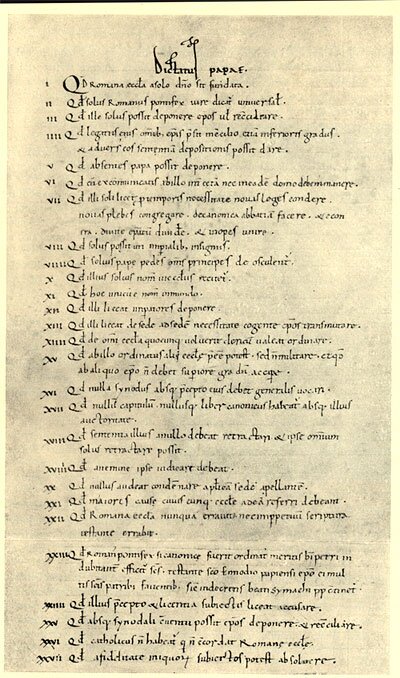 Dictatus papae.
I Qd Romana eccła a solo dño sit fundata.
II Qd solus Romanus pontifex iure dicat universał.
III Qd ille solus possit deponere epos uł recciliare.
IIII Qd legatus eius omib epis presit in concilio etiã inferioris gradus.
& adversus eos sententiã depositionis possit dare.
V Qd absentes papa possit deponere.
VI Qd cũ excommunicatis ab illo inť cetã nec in eadẽ domo debem manere.
VII Qd illi soli licet p temporis necessitate novas leges condere
novas plebes congregare. de canonica abbatiam facere. & econ
tra. divite epatũ dividere. & inopes unire.
VIII Qd solus possit uti imperialib insigniis.
VIIII Qd solius pape pedes oms principes deosculent.
X Qd illius solius nom in ecclis recitet.
XI Qd hoc unicũ ẽ nom in mundo.
XII Qd illi liceat imperatores deponere.
XIII Qd illi liceat de sede ad sedẽ necessitate cogente epos transmutare.
XIIII Qd de omi eccła quocunq voluerit clericũ valeat ordinare.
XV Qd ab illo ordinatus alii eccłe preẽ potest. sed ñ militare. et qđ
ab aliquo epo ñ debet supiore gradũ accipe.
XVI Qd nulla synodus absq pcepto eius debet generalis vocari.
XVII Qd nullũ capitulũ nullusq liber canonicus habeat absq illius
auctoritate.
XVIII Qd sententia illius a nullo debeat retractari & ipse omnium
solus retractare possit.
XVIIII Qd a nemine ipse iudicari debeat.
XX Qd nullus audeat condẽnare aplicã sedẽ apellante.
XXI Qd maiores cause cuiuscunq eccłe ad eã referri debeant.
XXII Qd Romana eccła nunquã erravit nec imppetuũ scriptura
testante errabit.
XXIII Qd Roman pontifex si canonice fuerit ordinat meritis b petri in
dubitant effici scs. testante sco Ennodio papiensi epo ei mul
tis scis patrib faventib. sic in decretis beati symachi pp continet
XXIIII Qd illius pcepto & licentia subiectis liceat accusare.
XXV Qd absq synodali conventu possit epos deponere & recciliare.
XXVI Qd catholicus ñ habeat q ñ cordat Romane eccłe.
XXVII Qd a fidelitate iniquorũ subiectos potest absolvere.